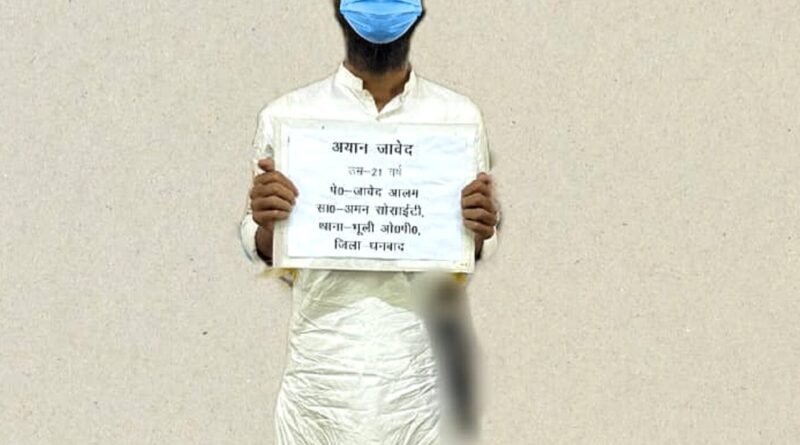 अयान जावेद
उम्र-21 वर्ष
पे0-जावेद आलम
सा0-अमन सोसाईटी,
थाना-भूली ओ0पी0,
जिला-धनबाद